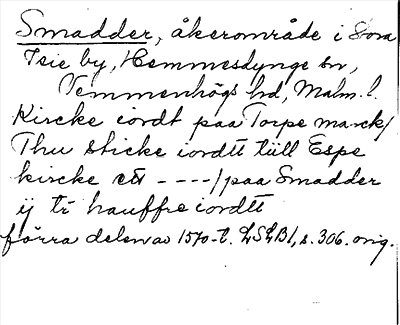 Smadder, åkerområde i Stora
Isie by, Hemmesdynge sn,
Vemmenhögs hd, Malm. l.
Kircke iordt paa Torpe marck/
Thu sticke iordtt tiill Espe
kircke ett - - - -/paa Smadder
ij tr hauffre iordtt
förra delen av 1570-t. LSLB1, s. 306. orig.